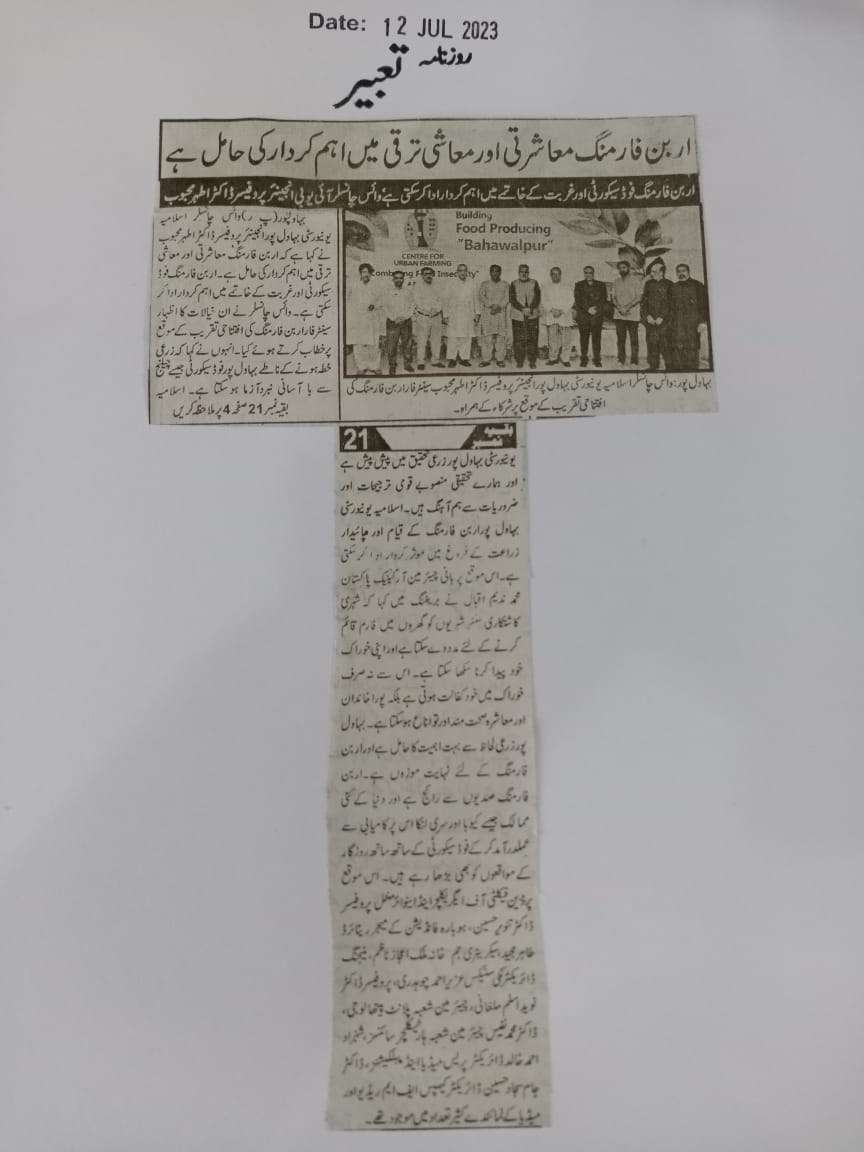 Date: 12 JUL 2023
روزنامہ تعبیر
اربن فارمنگ معاشرتی اور معاشی ترقی میں اہم کردار کی حامل ہے
اربن فارمنگ فوڈ سیکورٹی اور غربت کے خاتمے میں اہم کردار ادا کر سکتی ہے، وائس چانسلر آئی یو بی انجینئر پروفیسر ڈاکٹر اطہر محبوب
بہاولپور (پ ر) وائس چانسلر اسلامیہ
یونیورسٹی بہاول پور انجینئر پروفیسر ڈاکٹر اطہر محبوب
نے کہا ہے کہ اربن فارمنگ معاشرتی اور معاشی
ترقی میں اہم کردار کی حامل ہے۔ اربن فارمنگ فوڈ
سیکورٹی اور غربت کے خاتمے میں اہم کردار ادا کر
سکتی ہے۔ وائس چانسلر نے ان خیالات کا اظہار
سینٹر فار اربن فارمنگ کی افتتاحی تقریب کے موقع
پر خطاب کرتے ہوئے کیا۔ انہوں نے کہا کہ زرعی
خطہ ہونے کے ناطے بہاول پور فوڈ سیکورٹی جیسے چیلنج
سے با آسانی نبرد آزما ہو سکتا ہے۔ اسلامیہ
بقیہ نمبر 21 صفحہ 4 پر ملاحظہ کریں
Building
Food Producing
"Bahawalpur"
CENTRE FOR
URBAN FARMING
Combating Food Insecurity"
AT
بہاول پور: وائس چانسلر اسلامیہ یونیورسٹی بہاول پور انجینئر پروفیسر ڈاکٹر اطہر محبوب سینٹر فار اربن فارمنگ کی
افتتاحی تقریب کے موقع پر شرکاء کے ہمراہ۔
21 بقیہ نمبر
یونیورسٹی بہاول پور زرعی تحقیق میں پیش پیش ہے
اور ہمارے تحقیقی منصوبے قومی ترجیحات اور
ضروریات سے ہم آہنگ ہیں۔ اسلامیہ یونیورسٹی
بہاول پور اربن فارمنگ کے قیام اور پائیدار
زراعت کے فروغ میں موثر کردار ادا کر سکتی
ہے۔ اس موقع پر بانی چیئرمین آرگینک پاکستان
محمد ندیم اقبال نے بریفنگ میں کہا کہ شہری
کاشتکاری سنٹر شہریوں کو گھروں میں فارم قائم
کرنے کے لئے مدد دے سکتا ہے اور اپنی خوراک
خود پیدا کرنا سکھا سکتا ہے۔ اس سے نہ صرف
خوراک میں خود کفالت ہوتی ہے بلکہ پورا خاندان
اور معاشرہ صحت مند اور توانا ع ہو سکتا ہے۔ بہاول
پور زرعی لحاظ سے بہت اہمیت کا حامل ہے اور اربن
فارمنگ کے لئے نہایت موزوں ہے۔ اربن
فارمنگ صدیوں سے رائج ہے اور دنیا کے کئی
ممالک جیسے کیوبا اور سری لنکا اس پر کامیابی سے
عملدرآمد کر کے فوڈ سیکورٹی کے ساتھ ساتھ روزگار
کے مواقعوں کو بھی بڑھا رہے ہیں۔ اس موقع
پر ڈین فیکلٹی آف ایگریکلچر اینڈ انوائرمنٹل پروفیسر
ڈاکٹر تنویر حسین، ہوبارہ فانڈیشن کے میجر ریٹائرڈ
طاہر مجید، سیکریٹری جم خانہ ملک اعجاز ناظم، مینجنگ
ڈائریکٹر کی سٹیکس عزیز احمد چوہدری، پروفیسر ڈاکٹر
نوید اسلم ملغانی، چیئرمین شعبہ پلانٹ پیتھالوجی،
ڈاکٹر محمد نفیس چیئرمین شعبہ ہارٹیکلچر سائنسز، شہزاد
احمد خالد ڈائریکٹر پریس میڈیا اینڈ پبلیکیشنز، ڈاکٹر
جام سجاد حسین ڈائریکٹر کیمپس ایف ایم ریڈیو اور
میڈیا کے نمائندے کثیر تعداد میں موجود تھے۔